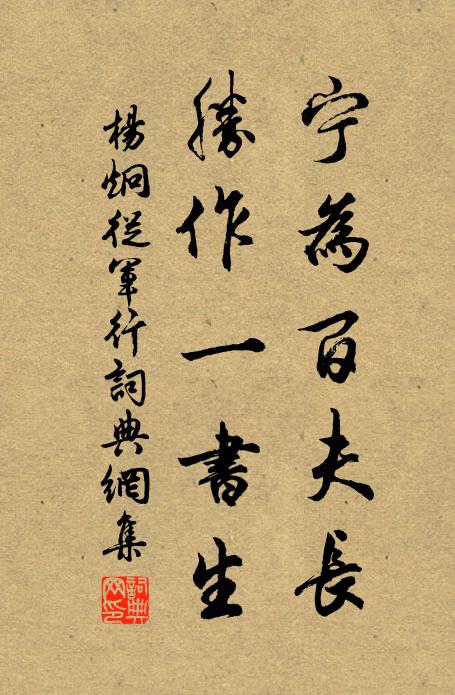 宁為百夫長
勝作一書生
楊炯從軍行詞典網集
詞典網印